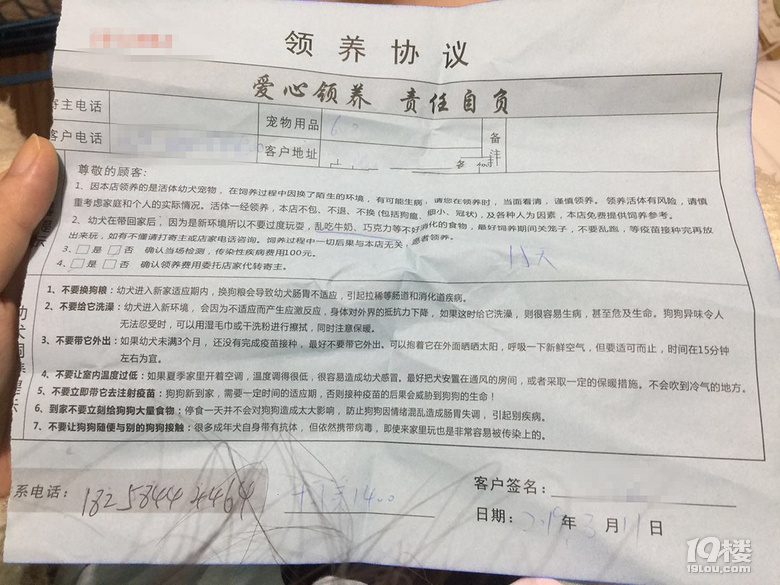 领养协议
爱心领养 责任自负
寄主电话
宠物用品
备注
客户电话
客户地址
尊敬的顾客:
1、因本店领养的是活体幼犬宠物，在饲养过程中因换了陌生的环境，有可能生病，请您在领养时，当面看清，谨慎领养。领养活体有风险，请慎
重考虑家庭和个人的实际情况。活体一经领养，本店不包、不退、不换(包括狗瘟、细小、冠状)，及各种人为因素，本店免费提供饲养参考。
2、幼犬在带回家后，因为是新环境所以不要过度玩耍，乱吃牛奶、巧克力等不好消化的食物，最好饲养期间关笼子，不要乱跑，等疫苗接种完再放
出来玩，如有不懂请打寄主或店家电话咨询。饲养过程中一切后果与本店无关，愿者领养。
3. 是 否 确认当场检测，传染性疾病费用100元。
4. 是 否 确认领养费用委托店家代转寄主。
1、不要换狗粮：幼犬进入新家适应期内，换狗粮会导致幼犬肠胃不适应，引起拉稀等肠道和消化道疾病。
2、不要给它洗澡：幼犬进入新环境，会因为不适应而产生应激反应，身体对外界的抵抗力下降，如果这时给它洗澡，则很容易生病，甚至危及生命。狗狗异味令人
无法忍受时，可以用湿毛巾或干洗粉进行擦拭，同时注意保暖。
3、不要带它外出：如果幼犬未满3个月，还没有完成疫苗接种，最好不要带它外出。可以抱着它在外面晒晒太阳，呼吸一下新鲜空气，但要适可而止，时间在15分钟
左右为宜。
4、不要让室内温度过低：如果夏季家里开着空调，温度调得很低，很容易造成幼犬感冒。最好把犬安置在通风的房间，或者采取一定的保暖措施。不会吹到冷气的地方。
5、不要立即带它去注射疫苗：狗狗新到家，需要一定时间的适应期，否则接种疫苗的后果会威胁到狗狗的生命！
6、到家不要立刻给狗狗大量食物：停食一天并不会对狗狗造成太大影响，防止狗狗因情绪混乱造成肠胃失调，引起别疾病。
7、不要让狗狗随便与别的狗狗接触：很多成年犬自身带有抗体，但依然携带病毒，即使来家里玩也是非常容易被传染上的。
系电话：18258444464
1400
客户签名：
日期：2019年3月11日
19楼
19lou.com